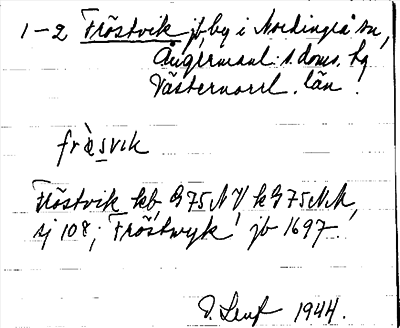 1-2 Fröstvik jb, by i Nordingrå sn,
Ångermanl. s. doms. hg
Västernorrl. län.
fræsvik
Fröstvik kb, G 75 NV, k G 75 NM,
sj 108; Fröstwyk jb 1697.
1944.